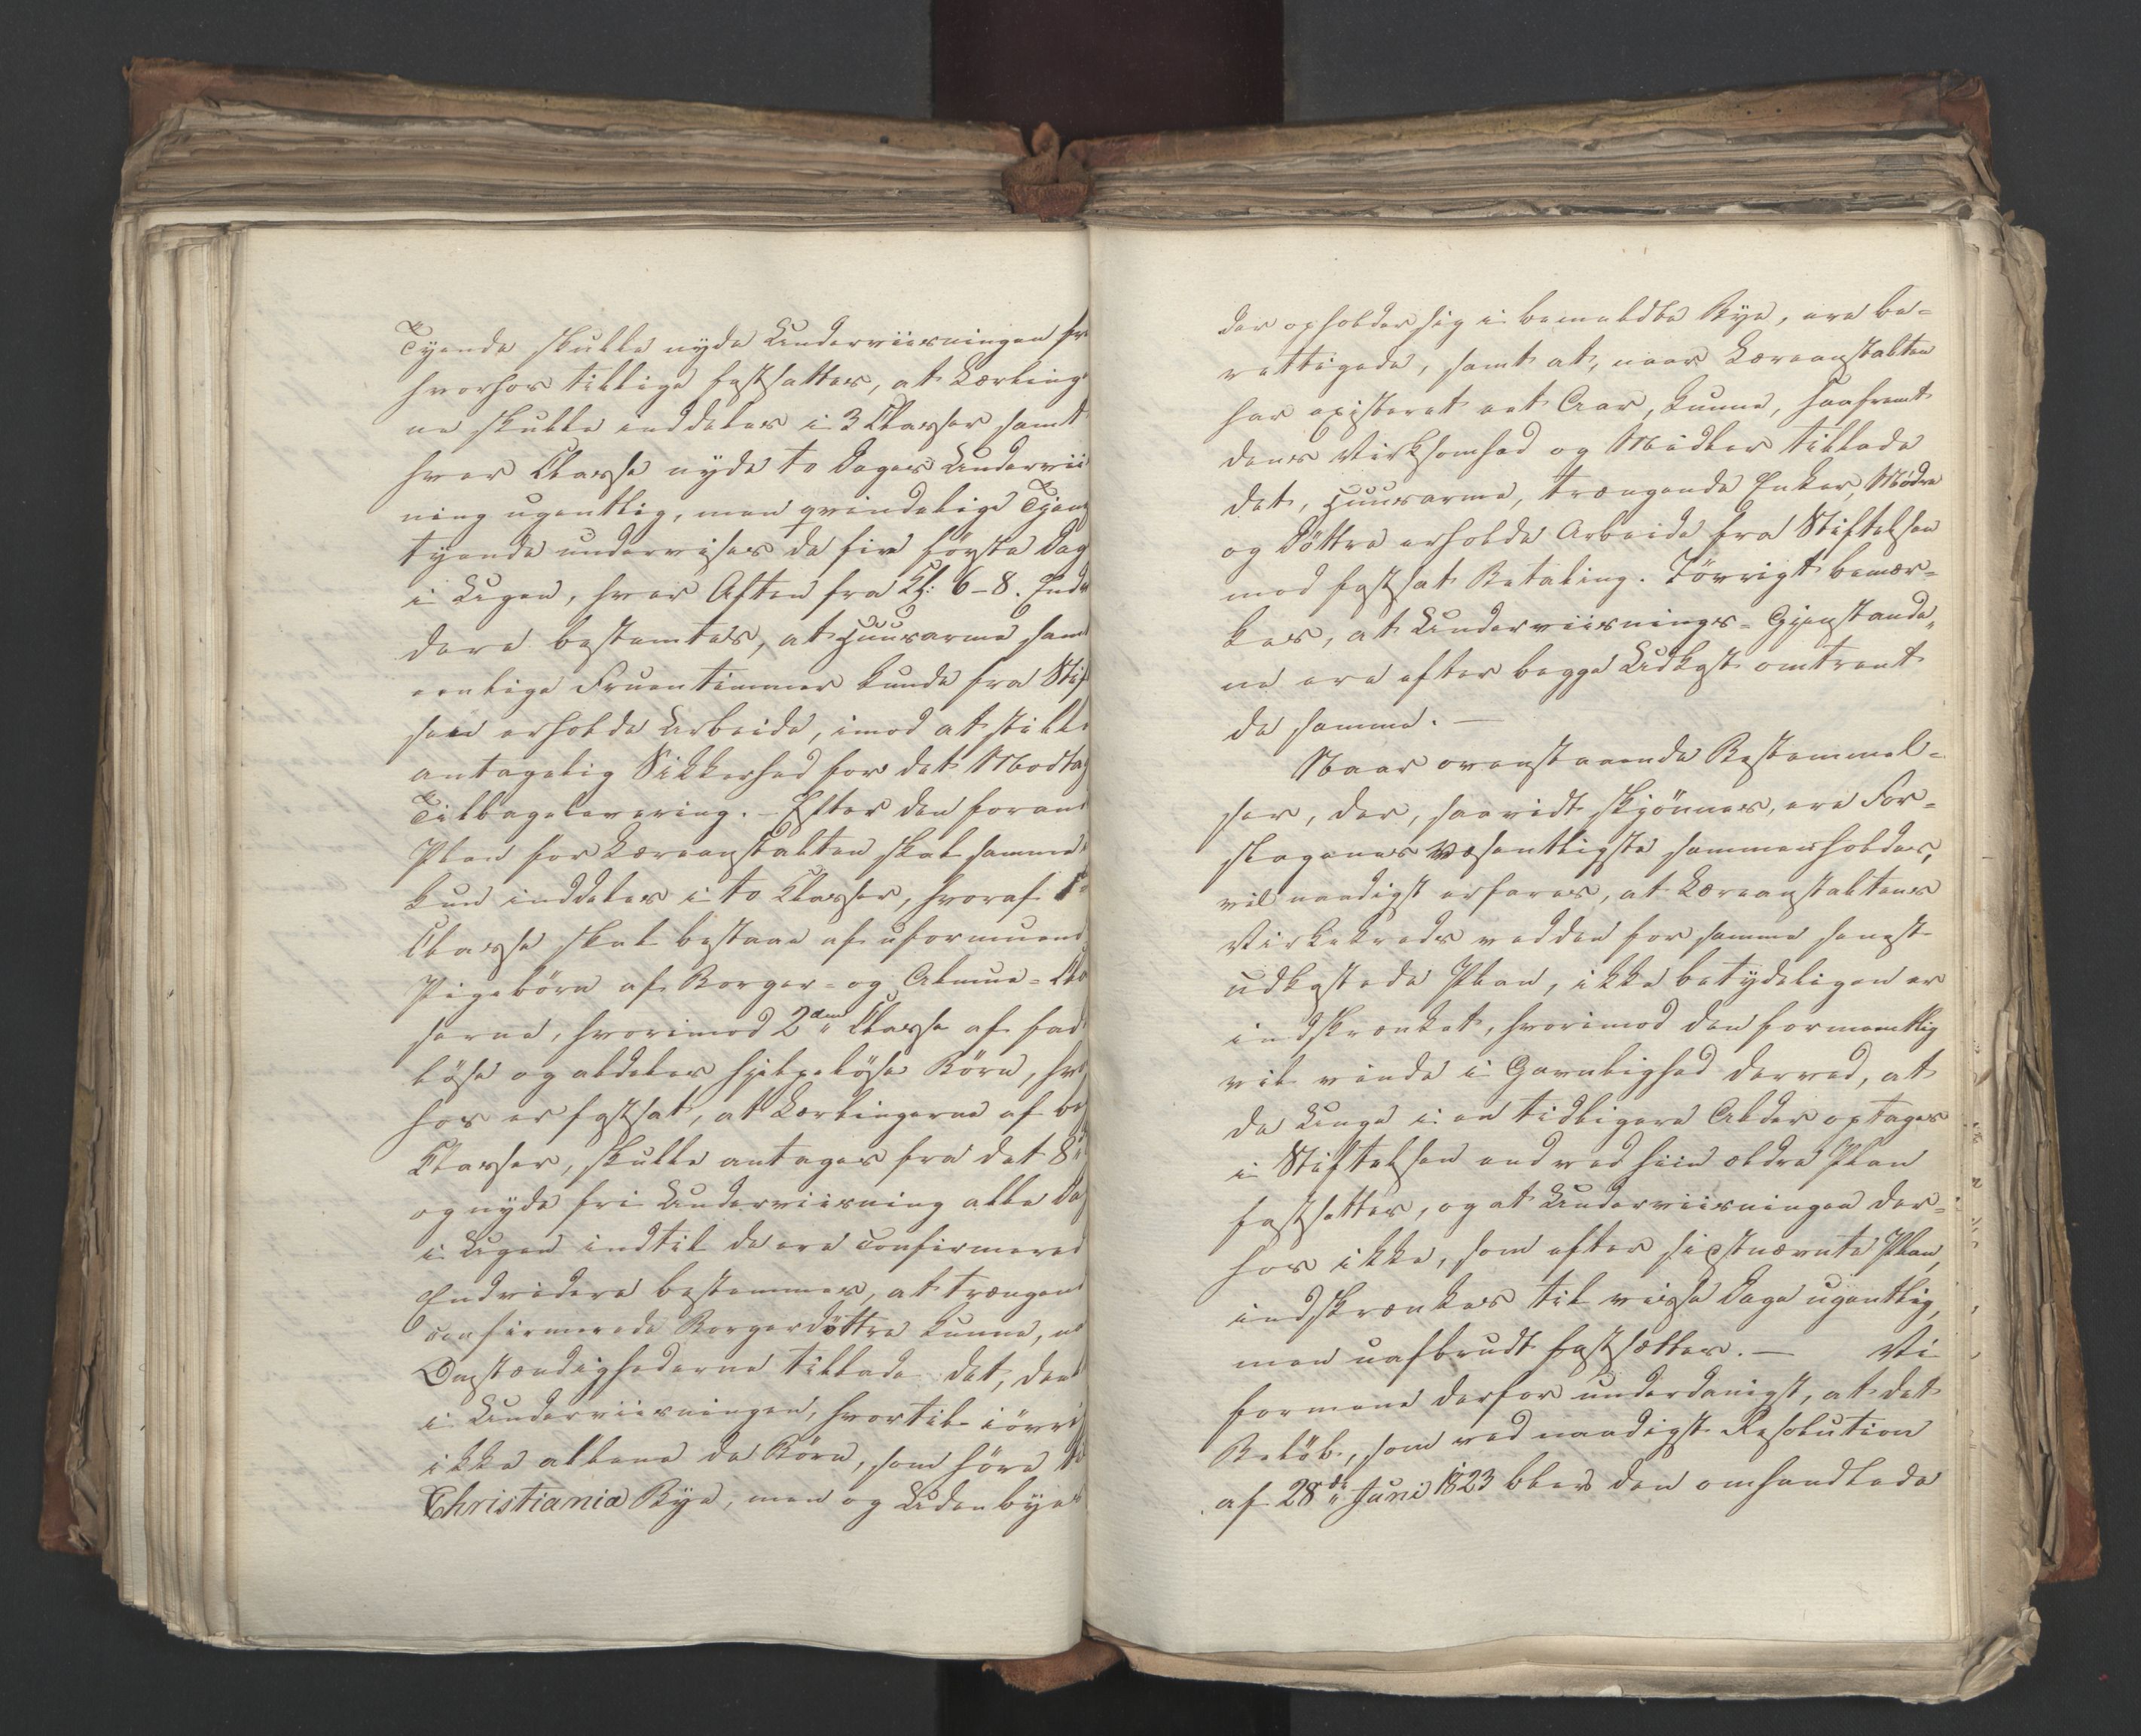 Tyende skulle nyde Underviisningen fr
hvorhos tillige fastsattes, at Lærling
ne skulle inddeles i 3 Classer samt
hver Classe nyde to Dages Undervii
ning ugentlig, men qvindelige Tjene
tyende undervises de fire første Dag
i Ugen, hver Aften fra Kl: 6-8. End
dere bestemtes, at huusarme samt
eenlige Fruentimmer kunde fra Stif
sen erholde Arbeide, imod at stille
antagelig Sikkerhed for det Modtag
Tilbagelevering. - Efter den foran
Plan for Læreanstalten skal samme
kun inddeles i to Classer, hvoraf 1ste
Classe skal bestaae af uformuend
Pigebörn af Borger- og Almue-Cla
serne, hvorimod 2den Classe af fad
löse og aldeles hjelpelöse Börn, hv
hos er fastsat, at Lærlingerne af be
Classer, skulle antages fra det 8de
og nyde fri Underviisning alle Da
i Ugen indtil de ere confirmered
Endvidere bestemmes, at trængend
confirmerede Borgerdöttre kunne, n
Omstændighederne tillade det, deel
i Underviisningen, hvortil iövri
ikke allene de Börn, som höre t
Christiania Bye, men og Udenbyes
der opholder sig i bemeldte Bye, ere be-
rettigede, samt at, naar Læreanstalten
har existeret eet Aar, kunne, saafremt
dens Virksomhed og Midler tillade
det, huusarme, trængende Enker, Mødre
og Döttre erholde Arbeide fra Stiftelsen
mod fastsat Betaling. Iövrigt bemær-
kes, at Underviisnings-Gjenstande-
ne ere efter begge Udkast omtrent
de samme. -
Naar ovenstaaende Bestemmel-
ser, der, saavidt skjönnes, ere For-
slagenes væsentligste sammenholdes,
vil naadigst erfares, at Læreanstaltens
Virkekreds ved den for samme senest
udkastede Plan, ikke betydeligen er
indskrænket, hvorimod den formeentlig
vil vinde i Gavnlighed derved, at
de Unge i en tidligere Alder optages
i Stiftelsen end ved hiin ældre Plan
fastsattes, og at Underviisningen der-
hos ikke, som efter sidstnævnte Plan,
indskrænkes til visse Dage ugentlig,
men uafbrudt fastsættes. - Vi
formene derfor underdanigst, at det
Belöb, som ved naadigst Resolution
af 28de Juni 1823 blev den omhandlede